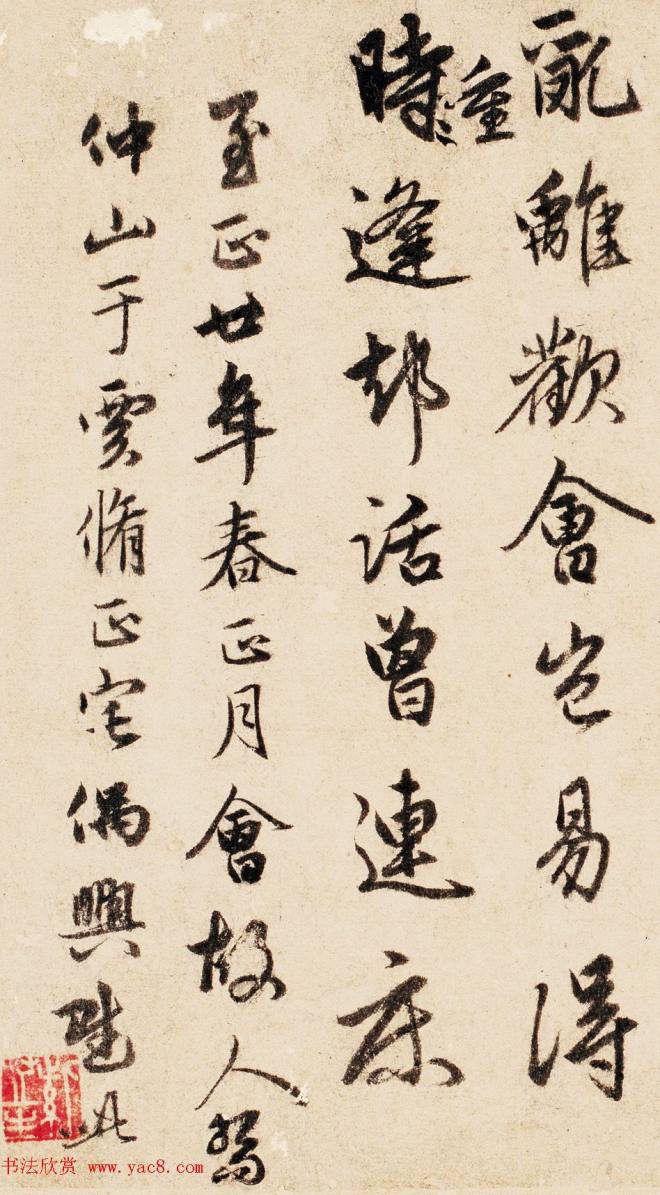 亂離歡會豈易得
時重逢却話曾連床
至正廿年春正月會故人
仲山于賈脩正宅偶興賦此
书法欣赏 www.yac8.com